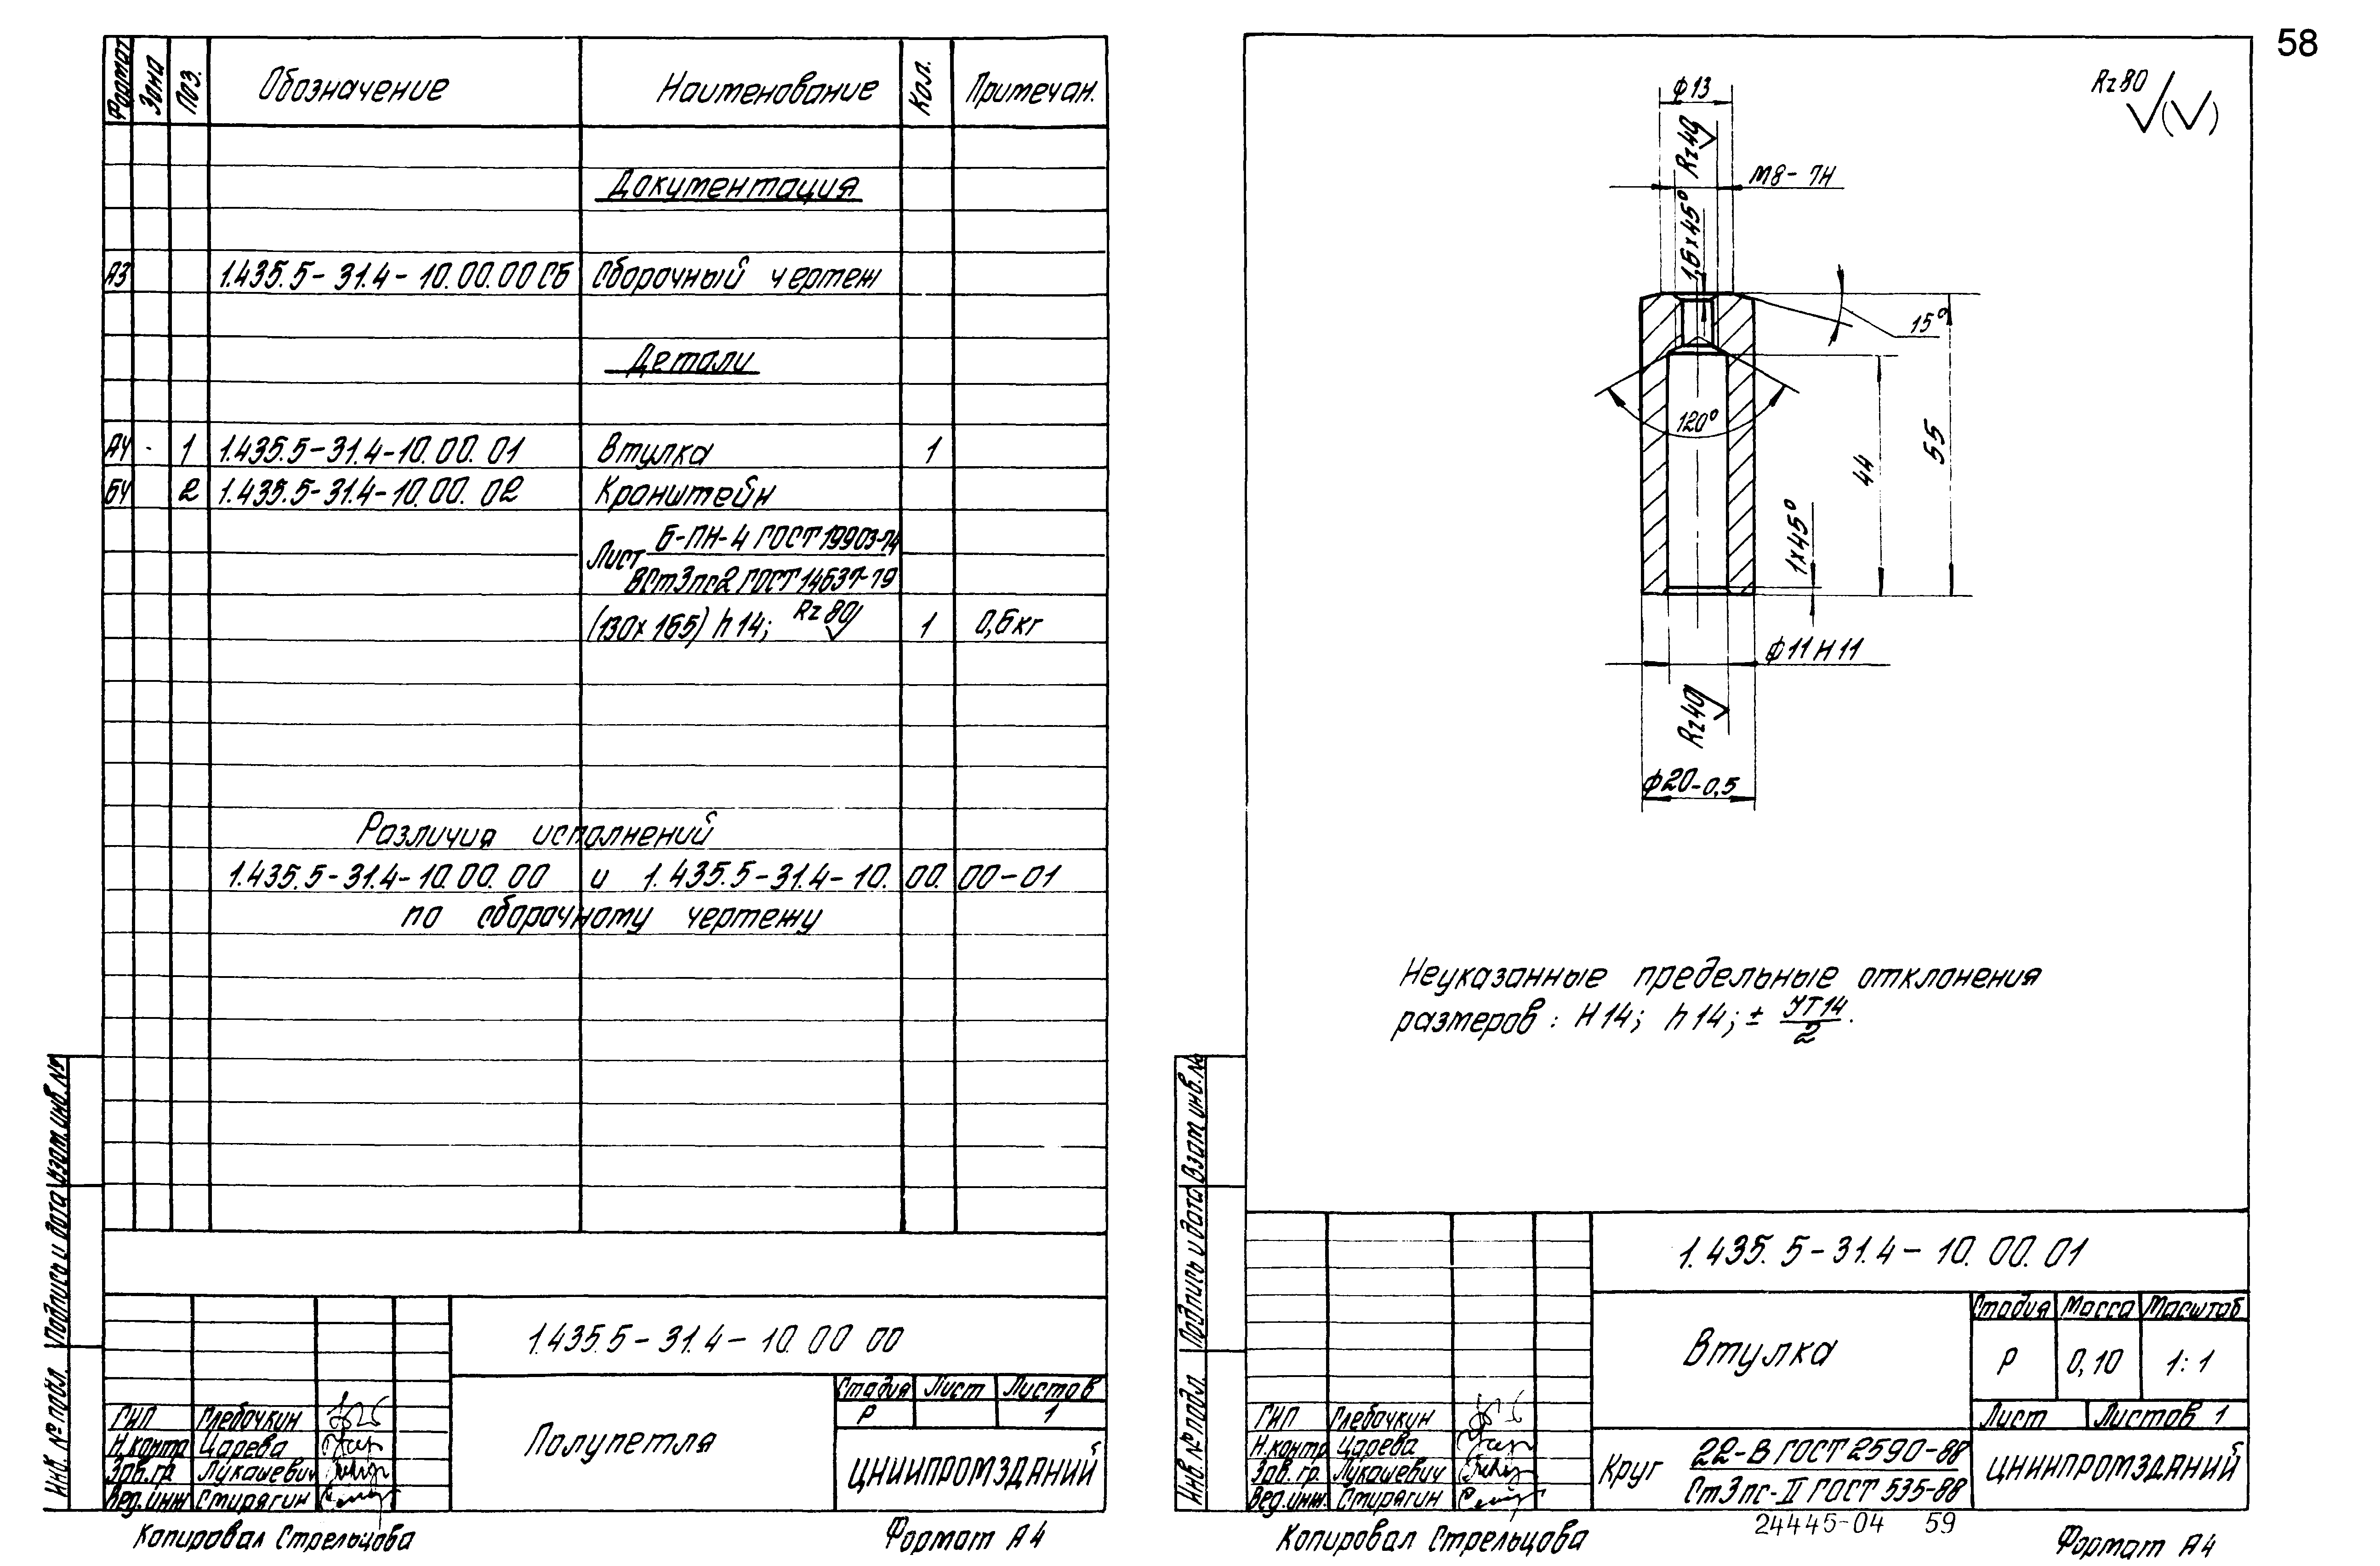 58
Формат Зона Поз. Обозначение Наименование Кол. Примечан.
Документация
А3 1.435.5-31.4-10.00.00СБ Сборочный чертеж
Детали
А4 1 1.435.5-31.4-10.00.01 Втулка 1
БЧ 2 1.435.5-31.4-10.00.02 Кронштейн
Б-ПН-4 ГОСТ 19903-74
Лист
ВСт3пс2 ГОСТ 14637-79
(130х165) h14; Rz80 1 0,6кг
Различия исполнений
1.435.5-31.4-10.00.00 и 1.435.5-31.4-10.00.00-01
по сборочному чертежу
Инв. № подл. Подпись и дата Взам. инв. №
1.435.5-31.4-10.00 00
Стадия Лист Листов
Р 1
Полупетля
ЦНИИПРОМЗДАНИЙ
ГИП Глебочкин
Н.контр Царева
Зав.гр. Лукашевич
Вед.инж Стирягин
Копировал Стрельцова Формат А4
Rz80 √(√)
ф13
Rz40
М8-7Н
1,6х45°
15°
120°
44
55
1х45°
ф11Н11
Rz40
ф20-0,5
Неуказанные предельные отклонения
размеров: Н14; h14; ± JT14/2.
Инв. № подл. Подпись и дата Взам. инв. №
1.435.5-31.4-10.00.01
Стадия Масса Масштаб
Втулка
Р 0,10 1:1
Лист Листов 1
ГИП Глебочкин
Н.контр Царева
Зав. гр. Лукашевич
Вед.инж. Стирягин
Круг 22-В ГОСТ 2590-88
Ст3пс-II ГОСТ 535-88
ЦНИИПРОМЗДАНИЙ
24445-04 59
Копировал Стрельцова Формат А4